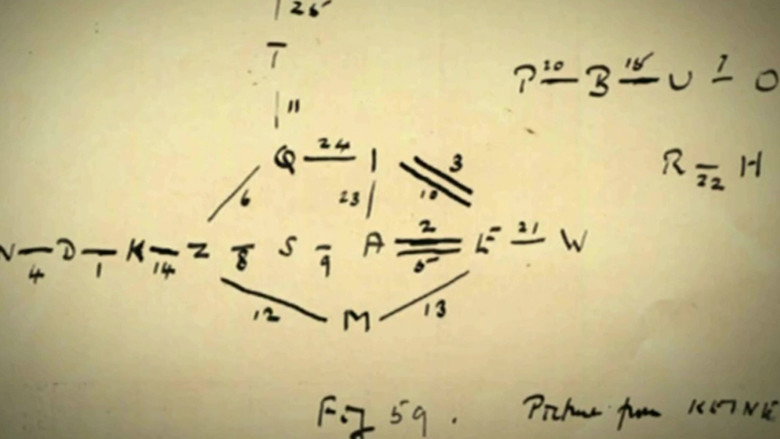 26
T
P 20 B 15 U 7 O
11
Q 24 I
3
R 22 H
6
23
10
D K Z S A 2 E 21 W
4 1 14 8 9 5
12 M 13
Fig 59. Picture from